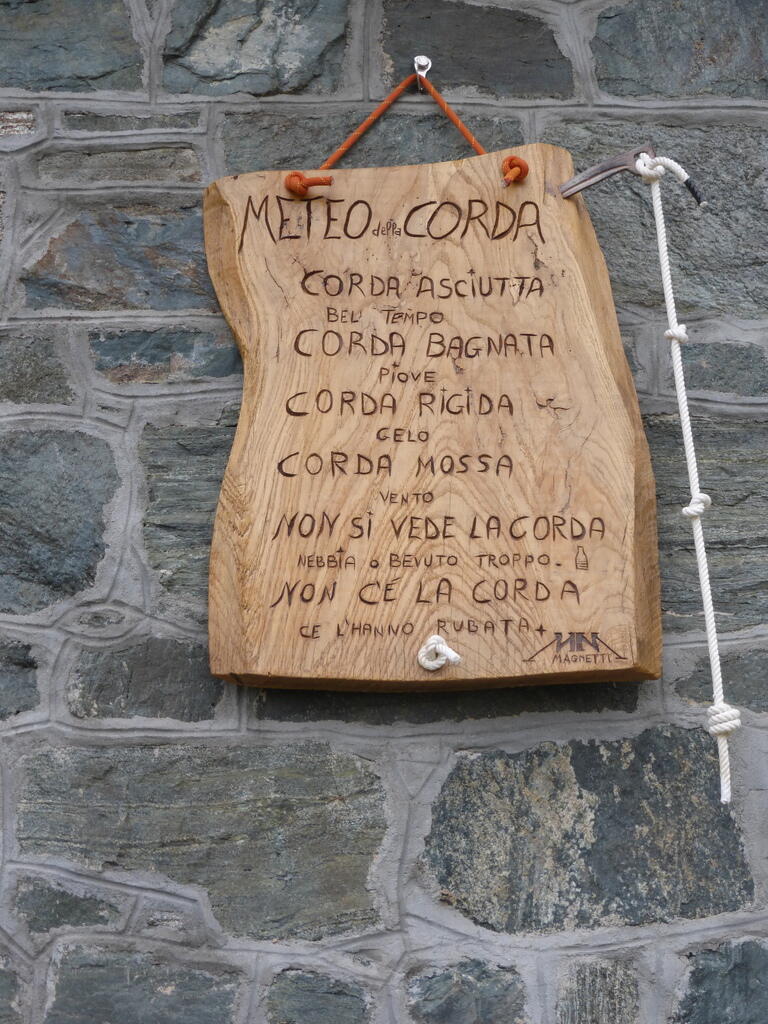 METEO della CORDA
CORDA ASCIUTTA
BEL TEMPO
CORDA BAGNATA
PIOVE
CORDA RIGIDA
GELO
CORDA MOSSA
VENTO
NON SI VEDE LA CORDA
NEBBIA o BEVUTO TROPPO.
NON CÉ LA CORDA
CE L'HANNO RUBATA
MAGNETTI